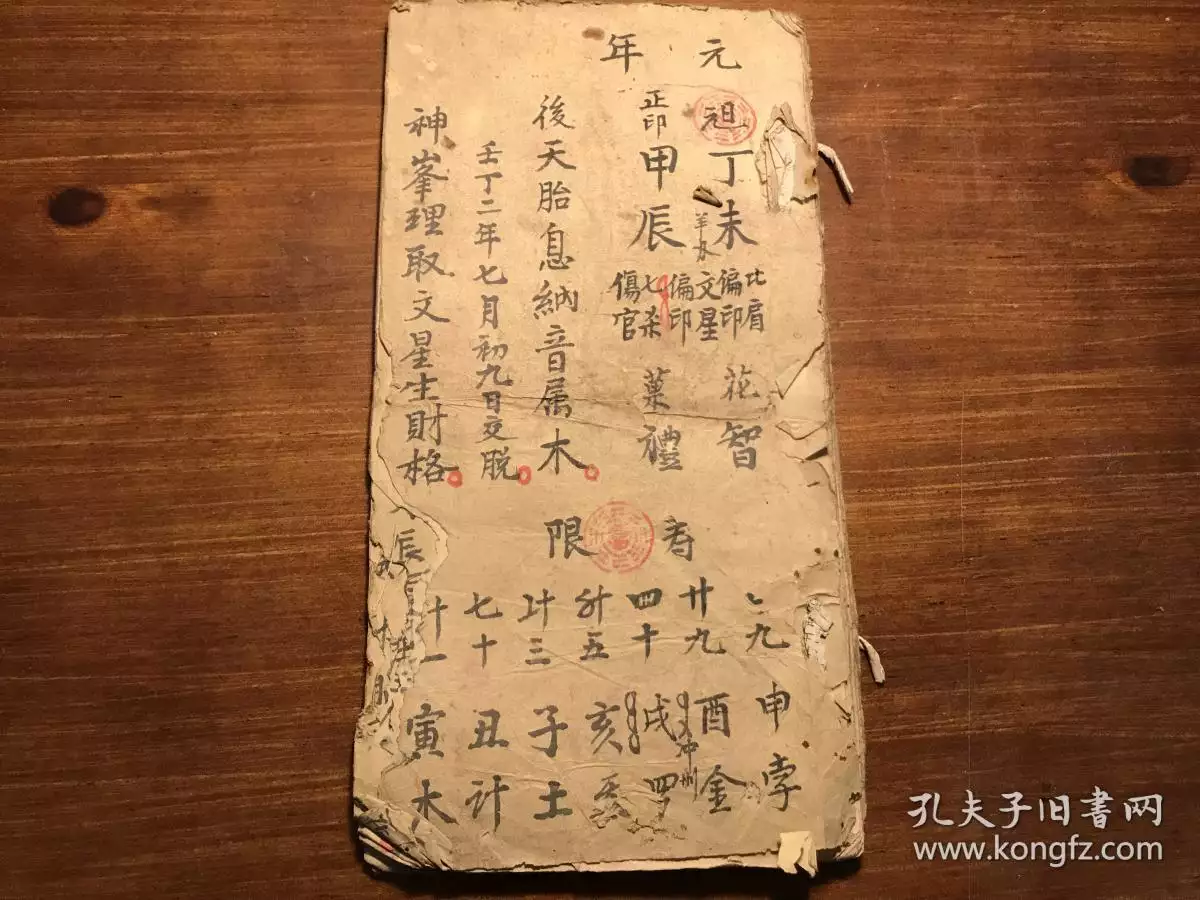 元年
丁未
比肩
偏印
文星
偏印
花智
正印
甲辰
七杀
傷官
菓禮
後天胎息納音属木
壬丁二年七月初九日交脱
神峯理取文星生財格
寿限
九
申孛
廿九
酉金
冲
四十
戌四
五
亥
三
子土
七十
丑计
十一
寅木
辰
孔夫子旧书网
www.kongfz.com